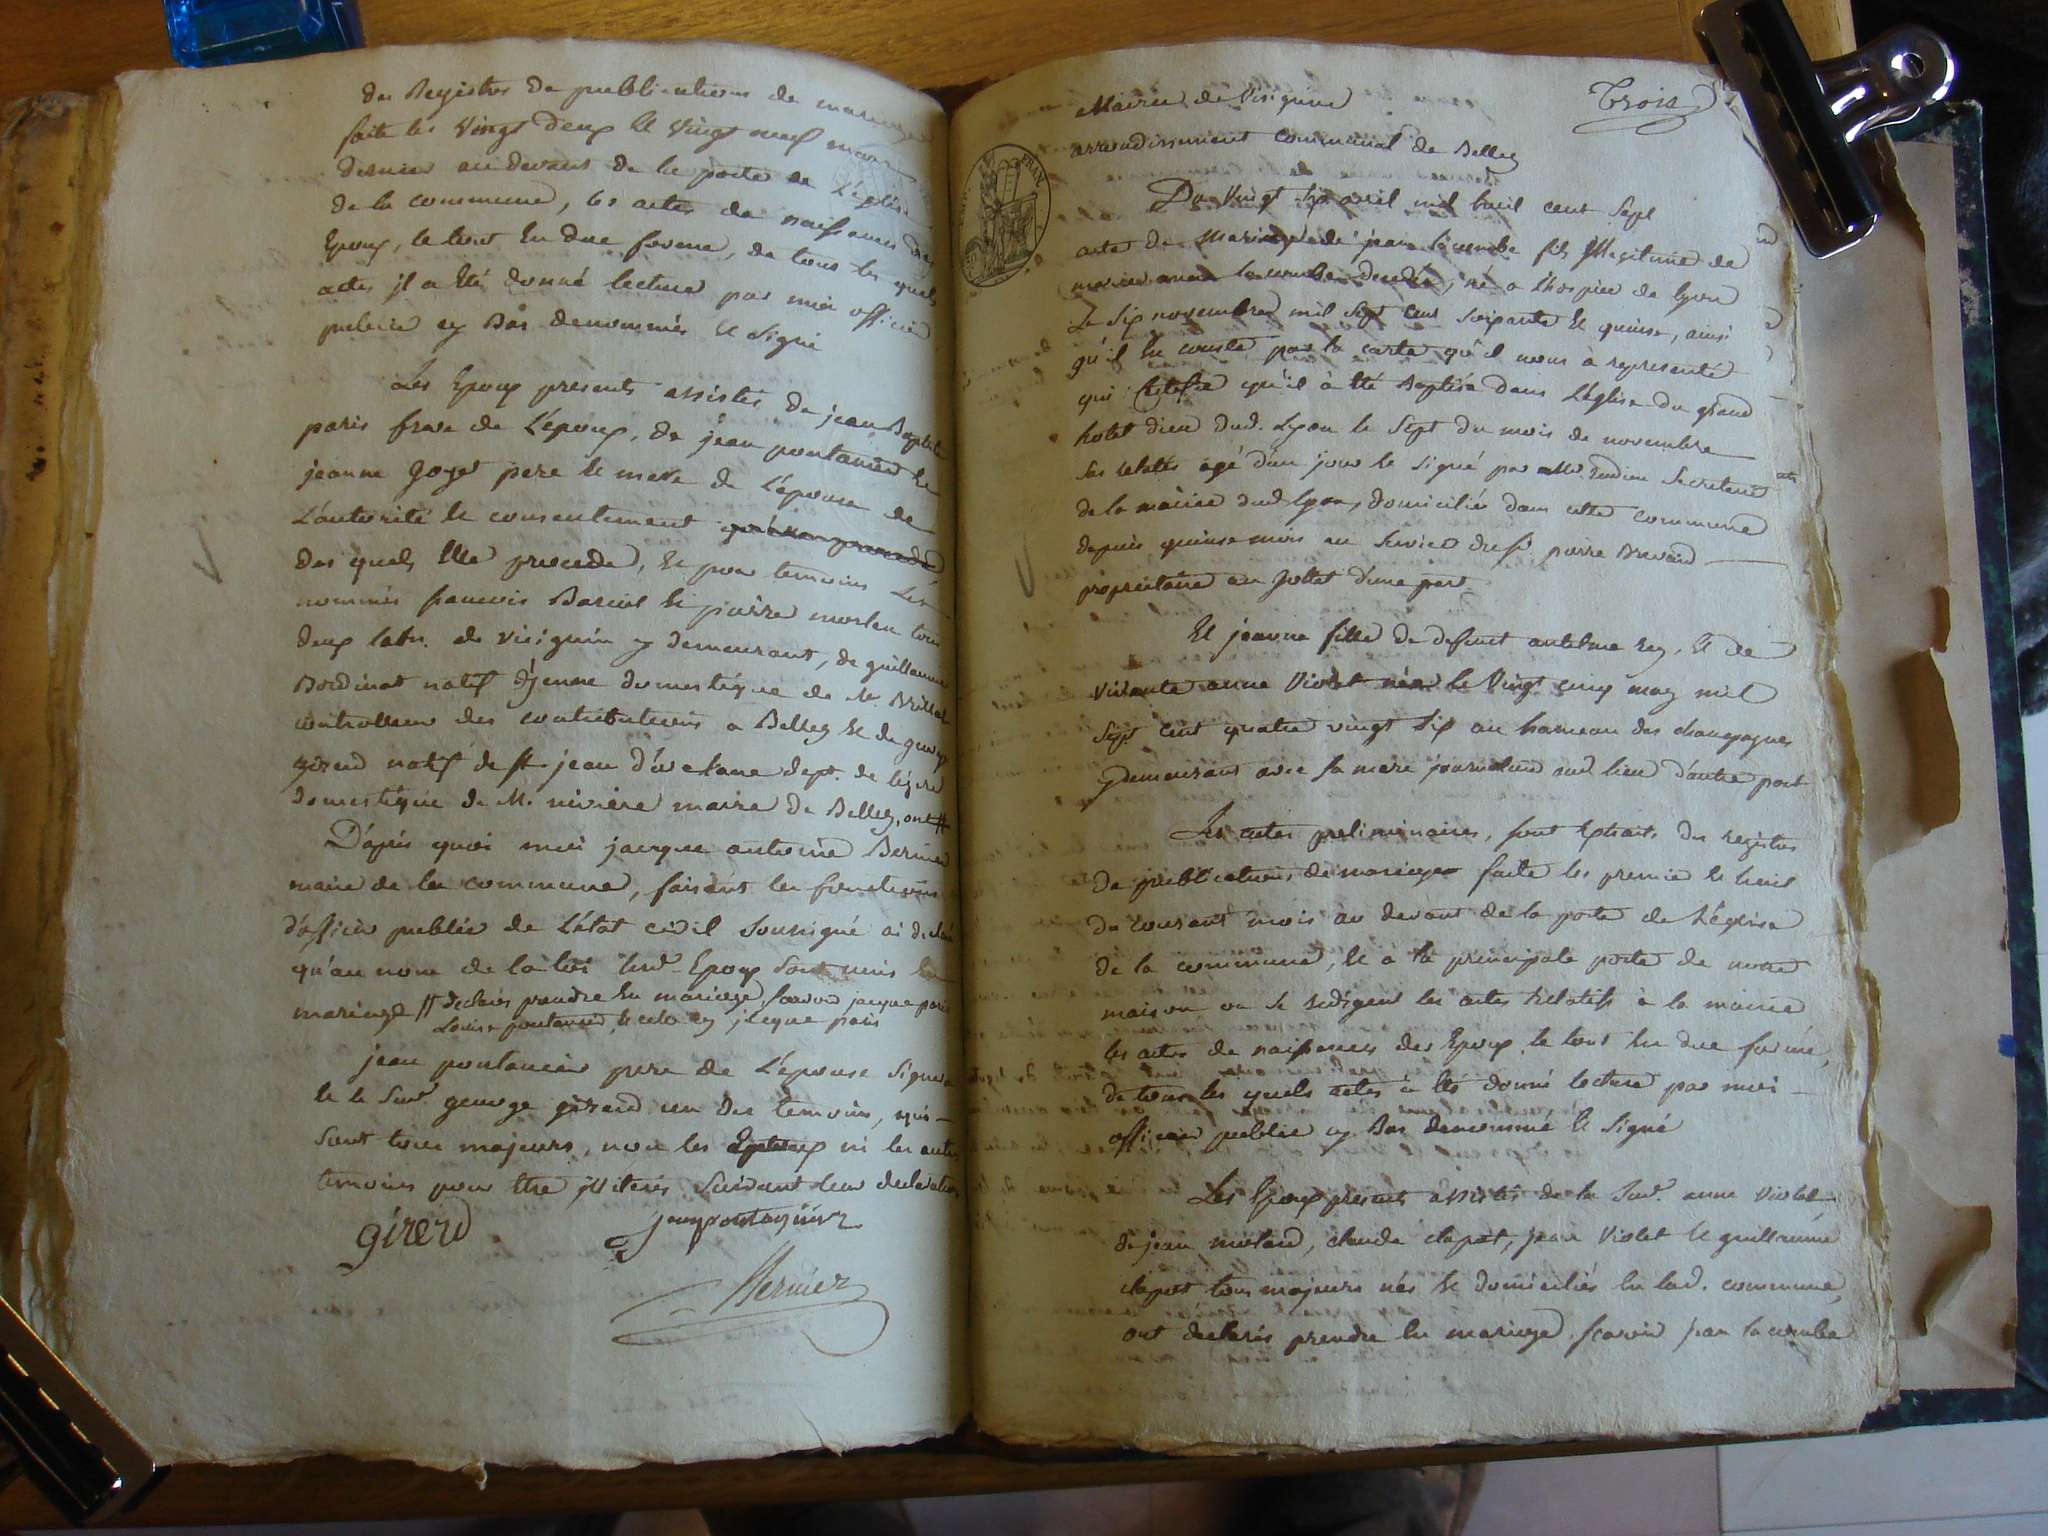 des Registres de publications de mariage
faite les vingt deux et vingt neuf mars
dernier au devant de la porte de L'église
de la commune, les actes de naissances des
Epoux, le tout En due forme, de tous les quels
actes il a été donné lecture par moi officier
public cy Bas denommés et signé
Les Epoux presents assistés de jean Baptiste
paris frere de L'epoux, de jean pontanier et
jeanne goget pere et mere de L'epouse de
L'autorité et consentement
des quels Elle procede, et pour temoins Les
nommés francois Bariol et pierre morlen tous
deux labr. de virignin y demeurant, de guillaume
Bordinat natif d'jenne domestique de Mr. Brillat
controlleur des contributions a Belley et de george
girerd natif de st. jean d'avelane dept. de l'isere
domestique de M. nivière maire de Belley, ont #
D'après quoi moi jacque antoine Bernier
maire de la commune, faisant les fonctions
d'officier public de L'état civil soussigné ai déclaré
qu'au nom de la loi lesd. Epoux sont unis En
mariage # declarés prendre En mariage, scavoir jacque paris
Louise pontanier, et celle cy jacque paris
jean pontanier pere de L'epouse signera
et le Susd. george girerd un des temoins, qui
sont tous majeurs, non les Epoux ni les autres
temoins pour être illiterés suivant leur declaration
girerd
jean pontanier
Bernier
Trois
Mairie de Virignin
arrondissement communal de Belley
Du vingt six avril mil huit cent sept
acte de Mariage de jean lacombe fils illegitime de
marie anne lacombe decedée, né a l'hospice de lyon
Le six novembre mil sept cent soixante et quinze, ainsi
qu'il En conste par la carte qu'il nous à representé
qui Certifie qu'il à été Baptisé dans L'église du grand
hotel dieu dud. Lyon le sept du mois de novembre
Sus relatés agé d'un jour et signé par Mr. Secretaire
de la mairie dud. lyon, domicilié dans cette commune
depuis quinze mois au service du sr. pierre Bravaid
propriétaire au jollet d'une part
Et jeanne fille de defunt antelme Rey, et de
vivante anne Violet née le vingt cinq may mil
sept cent quatre vingt six au hameau des champagnes
y demeurant avec sa mere journaliere aud. lieu d'autre part
Les actes preliminaires, sont Extraits des registres
de publications de mariage faite les premier et huit
du courant mois au devant de la porte de L'église
de la commune, et a la principale porte de notre
maison ou se redigent les actes relatifs à la mairie
les actes de naissances des Epoux, le tout En due forme,
de tous les quels actes à été donné lecture par moi
officier public cy Bas denommé et signé
Les Epoux presents assistés de la Susd. anne violet,
de jean molard, claude clapot, jean Violet et guillaume
clapot tous majeurs nés et domiciliés En lad. commune,
ont declarés prendre En mariage, scavoir jean lacombe